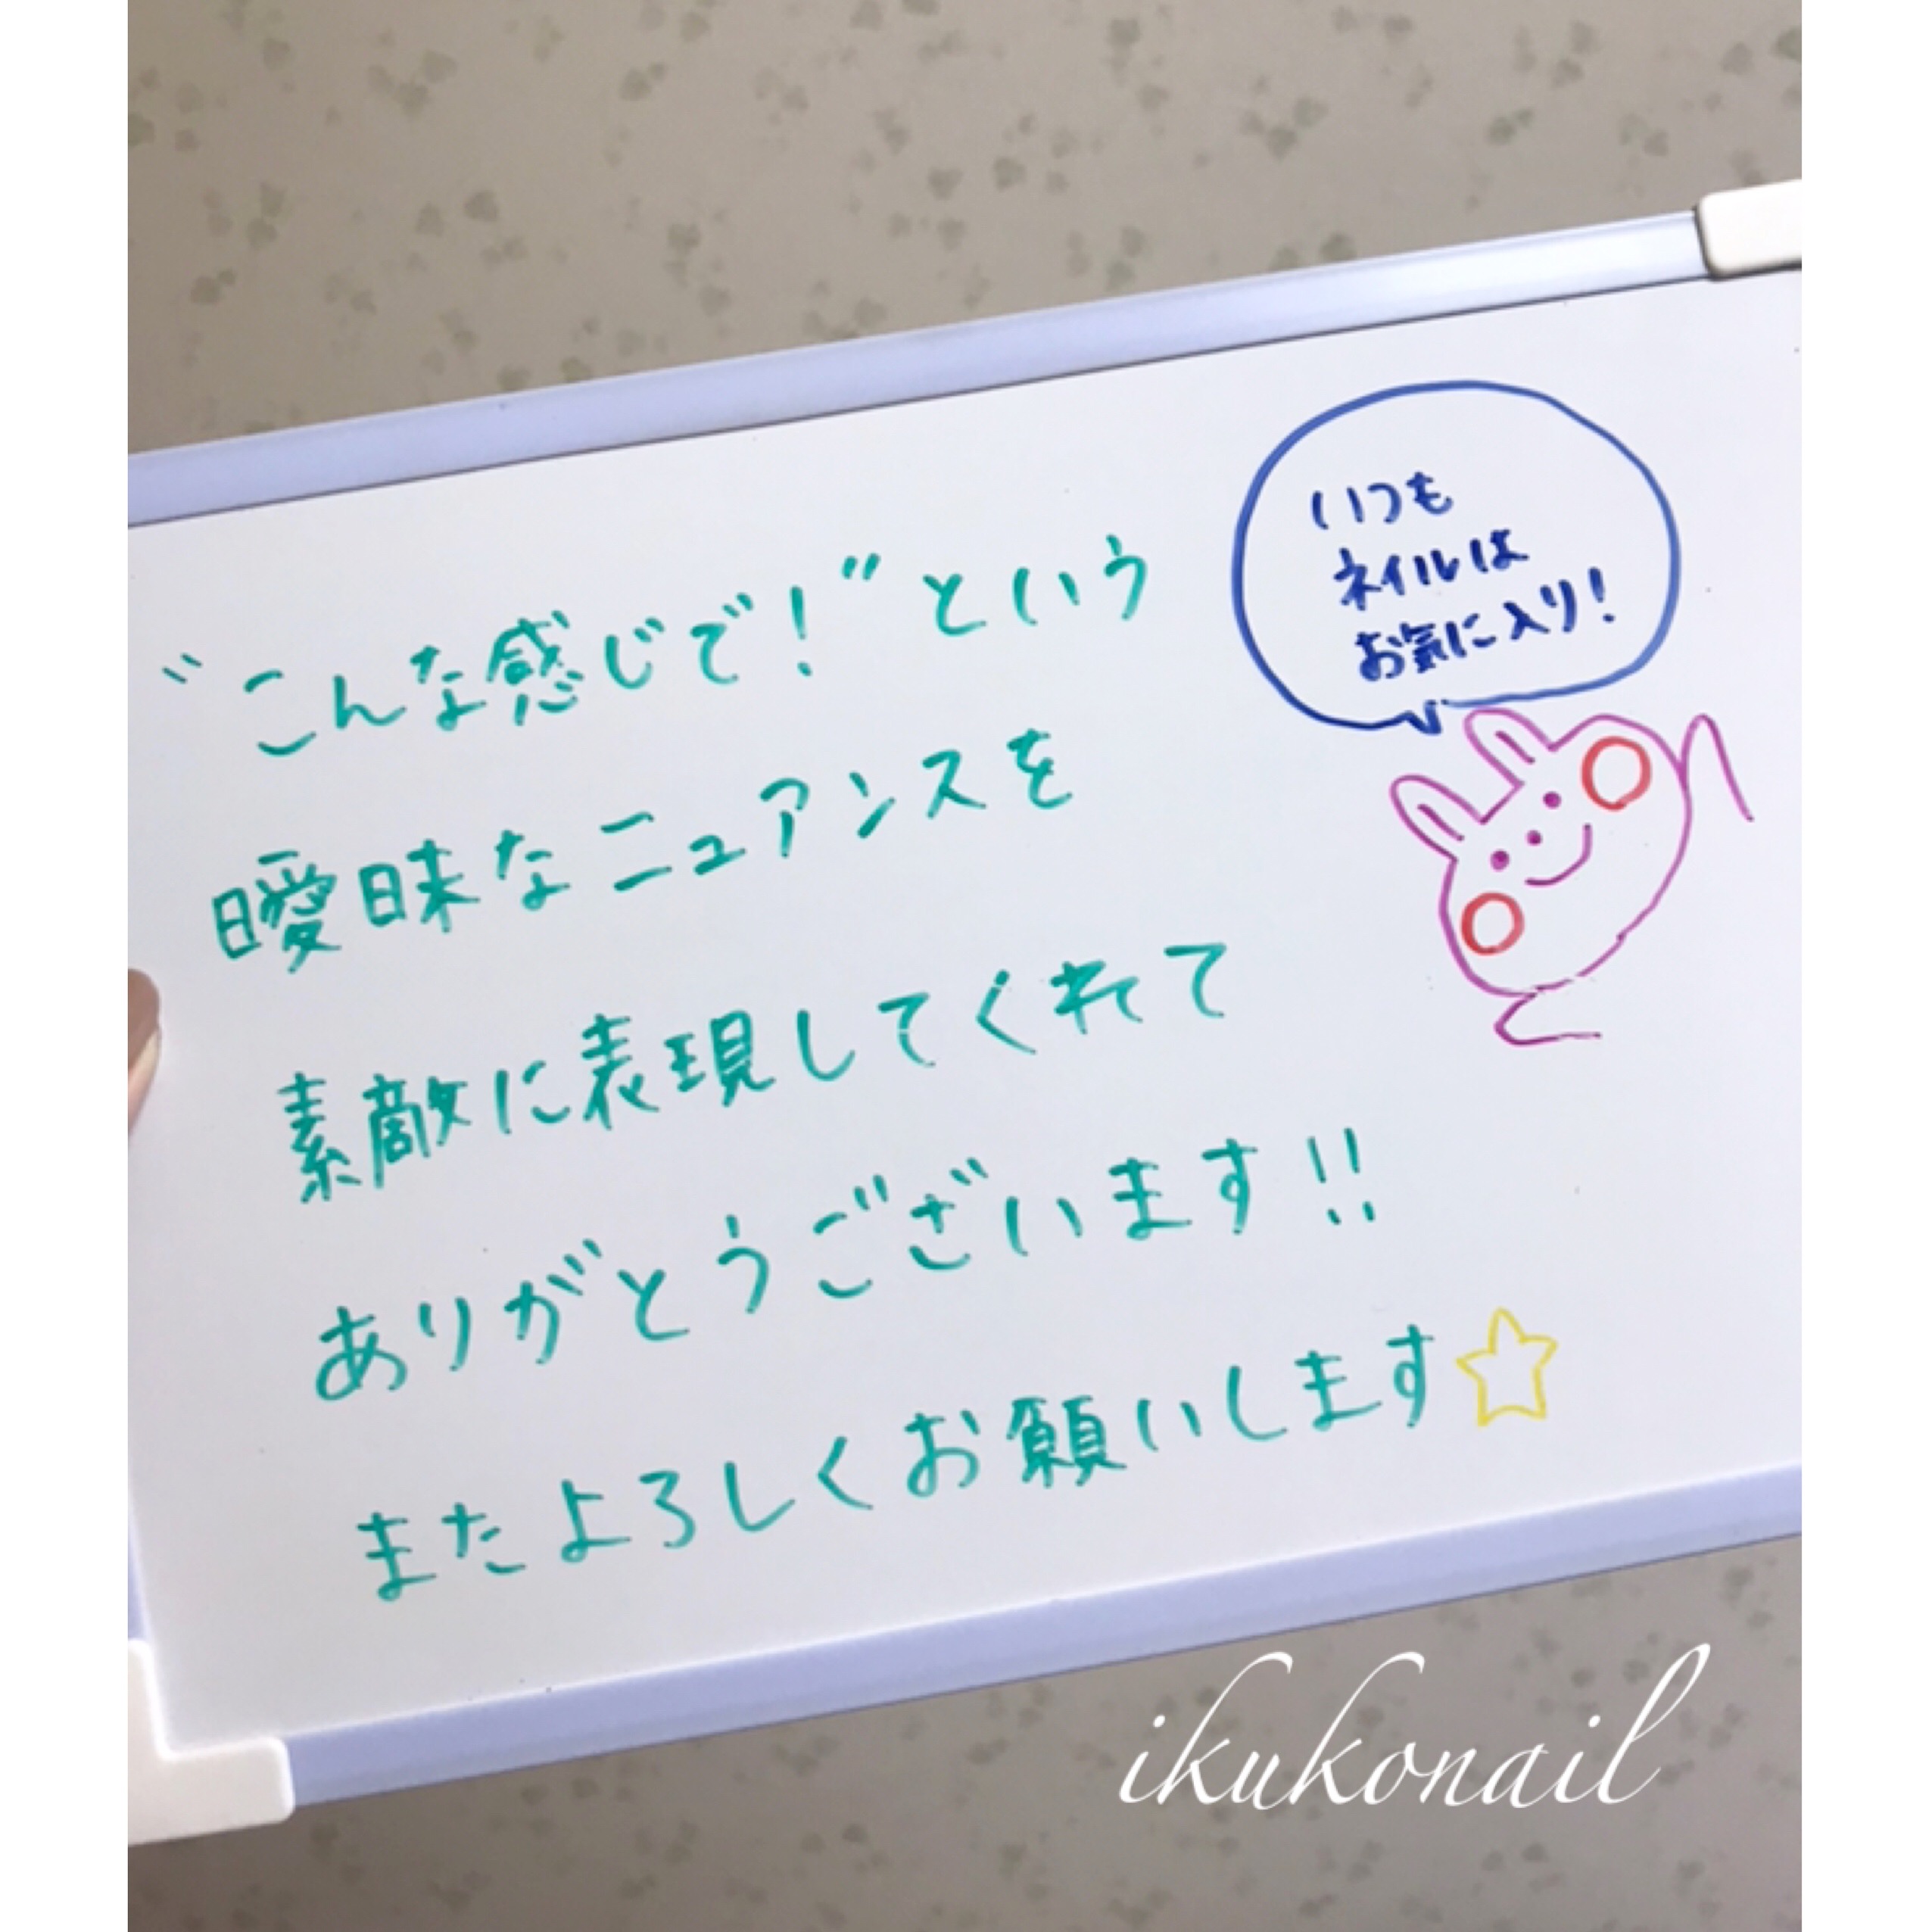 "こんな感じで！"という
曖昧なニュアンスを
素敵に表現してくれて
ありがとうございます!!
またよろしくお願いします☆
いつも
ネイルは
お気に入り！
ikukonail